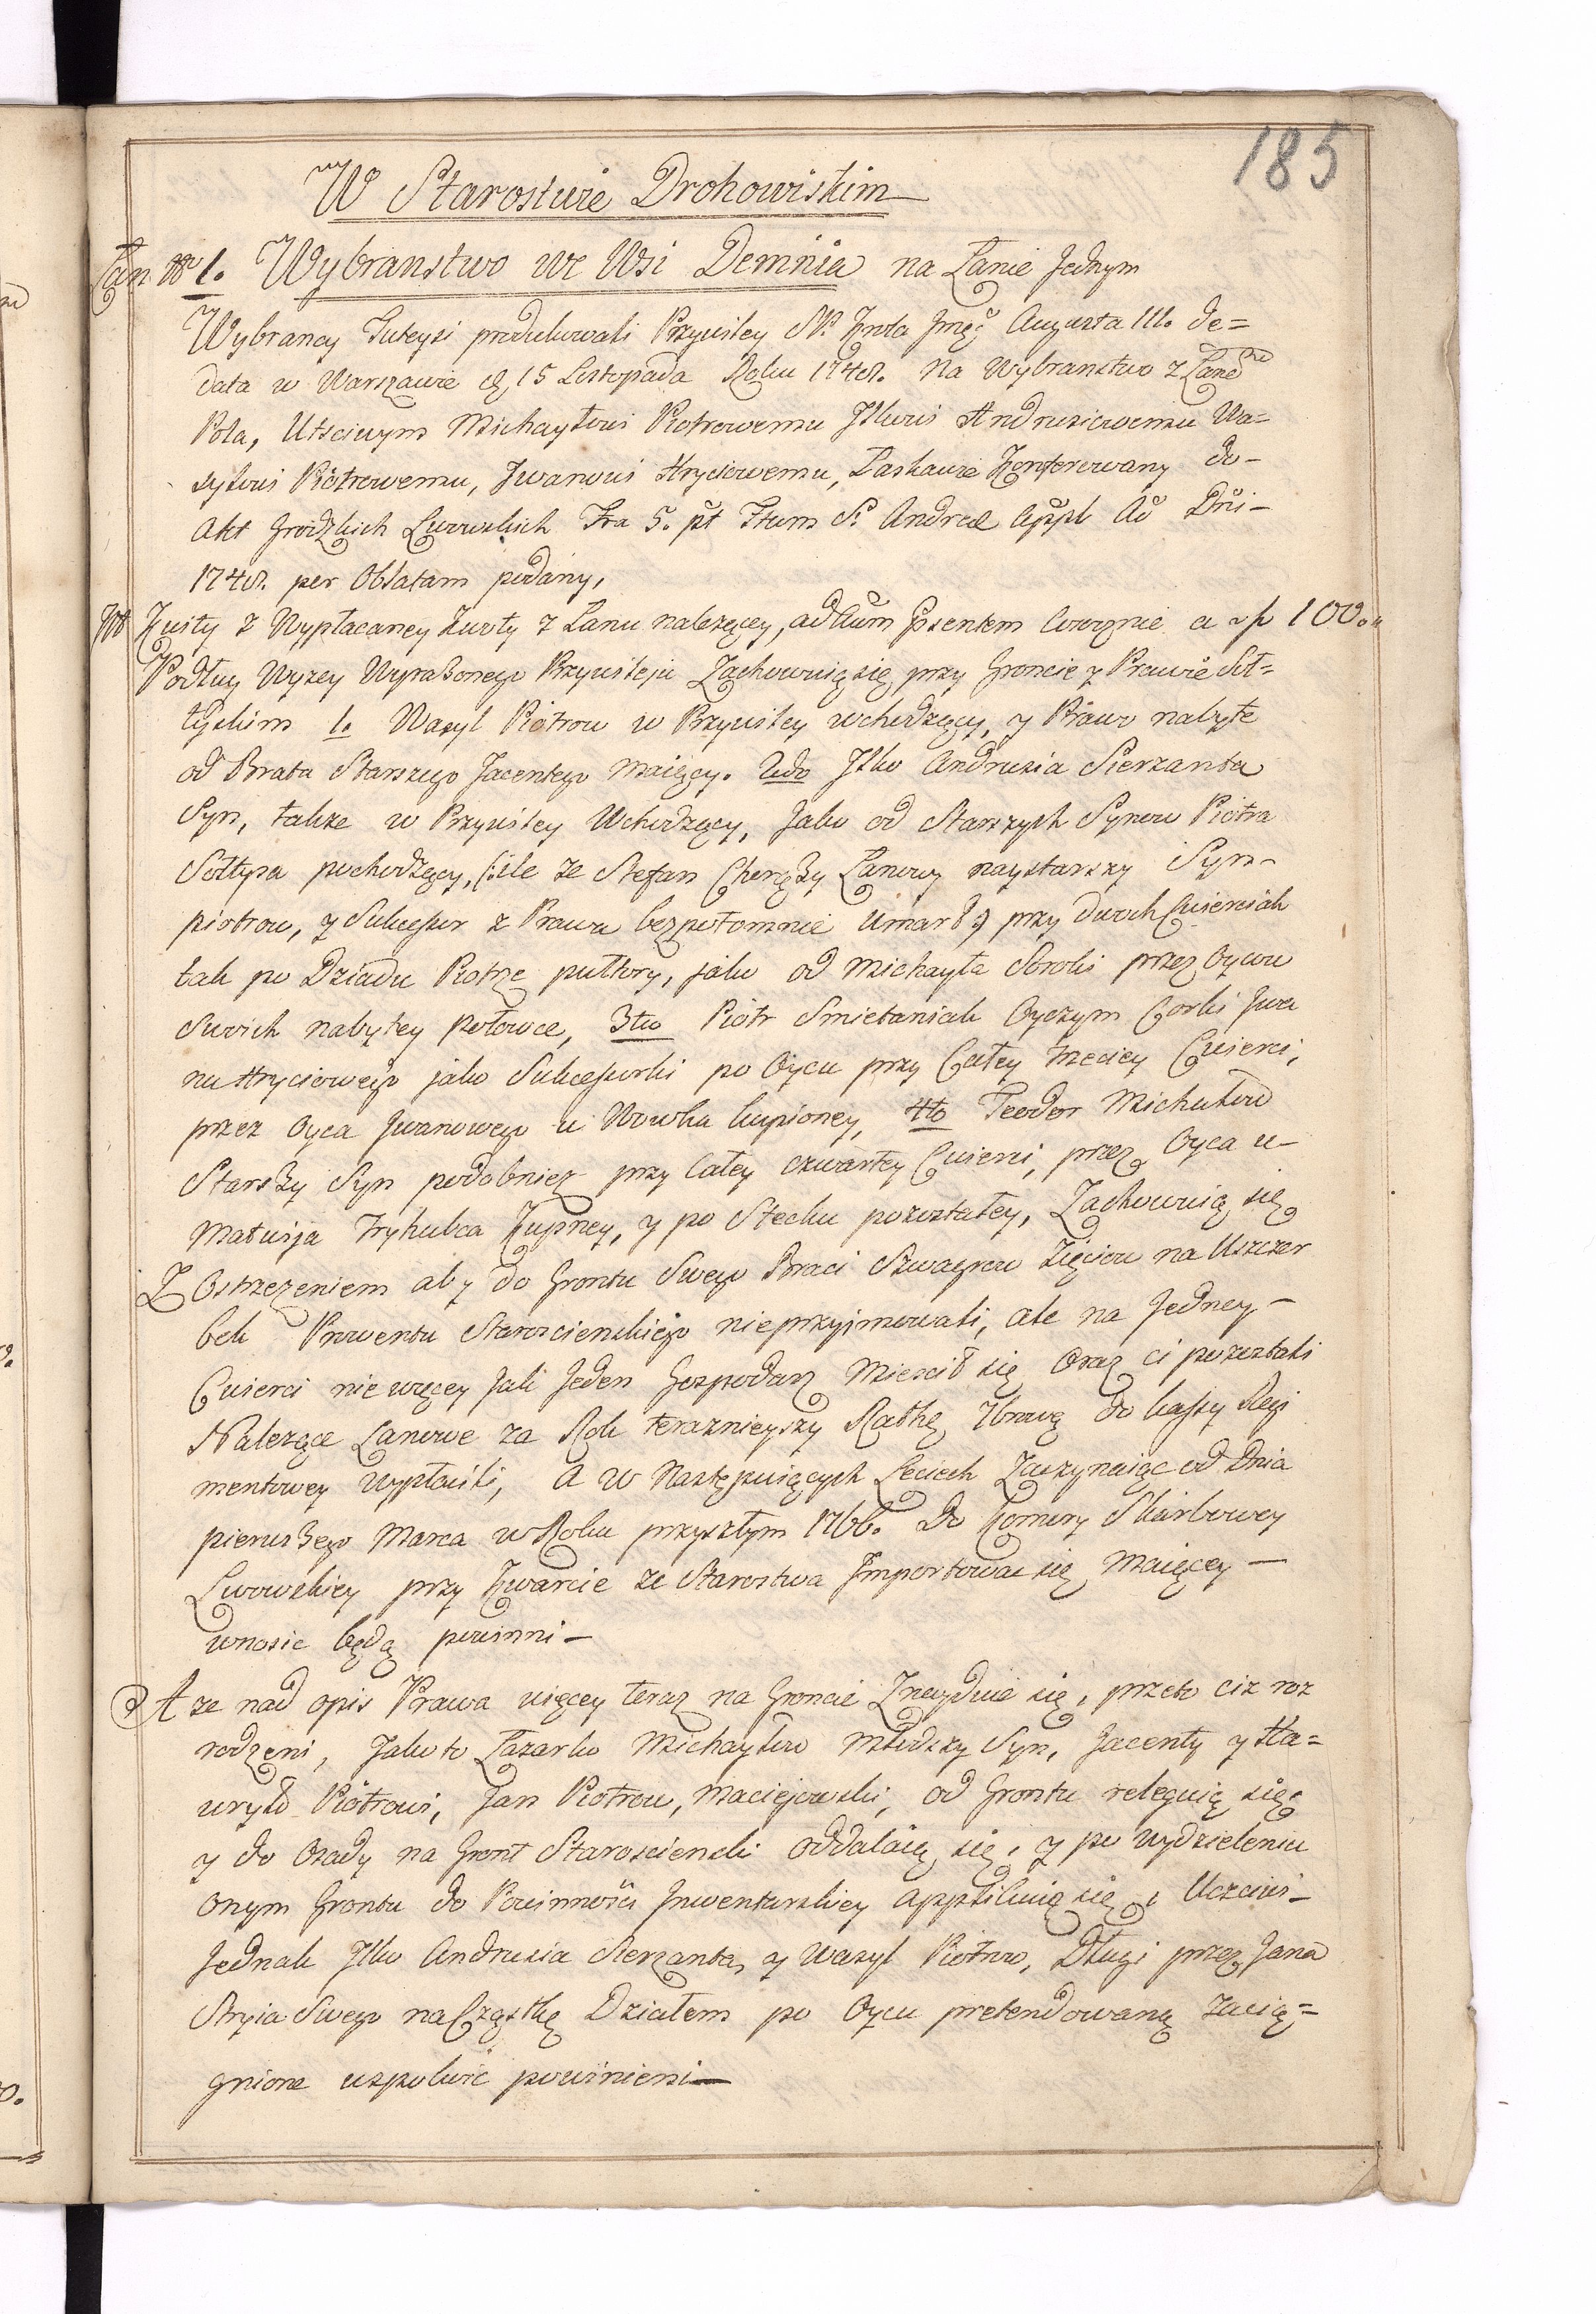 185
W Starostwie Drohowiskim
Łan Nro 1. Wybranstwo we Wsi Demnia na Łanie Jednym
Wybrancy Tuteysi produkowali Przywiley SP. Krola Jmęć Augusta III. de=
data w Warszawie d. 15 Listopada Roku 1748. Na Wybranstwo z Łanem
Pola, Utsciwym Michayłowi Piotrowemu Jlkowi Andrusiowemu Wa=
sylowi Piotrowemu, Jwanowi Hryciowemu, Łaskawie Konferowany do-
Akt Grodzkich Lwowskich Fra 5. pt Ftum S. Andreæ Appli Ao Dni-
1748. per Oblatam podany,
Kwity z Wypłacaney Kwoty z Łanu nalezęcey, ad Aum Psentem Corocznie a zł 100.
Podług Wyzey Wyrazonego Przywileju Zachowuią się przy Groncie y Prawie Soł=
tyskim 1. Wasyl Piotrow w Przywiley wchodzęcy, y Prawo nabyte
od Brata Starszego Jacentego Maięcy. 2do Jlko Andrusia Sierzanta
Syn, takze w Przywiley Wchodzęcy, Jako od Starszych Synow Piotra
Sołtysa pochodzęcy, (: ile ze Stefan Chorąży Łanowy naystarszy Syn-
piotrow, y Sukcessor z Prawa bezpotomnie Umarł :) przy dwoch Cwierciach
tak po Dziadu Piotrze pułtory, jako od Michayła Soroki przez Oycow
Swoich nabytey połowce, 3tio Piotr Smietaniak Oyczym Corki Jwa
na Hryciowego jako Sukcessorki po Oycu przy Całey trzeciey Cwierci,
przez Oyca Jwanowego u Wowka kupioney, 4to Teodor Michałow
Starszy Syn podobniez przy Całey czwartey Cwierci, przez Oyca u-
Matwija Tryhubca Kupney, y po Stecku pozostałey, Zachowuią się
Z Ostrzezeniem aby do Grontu Swego Braci Szwagrow Zięciow na Uszczer
bek Prowentu Staroscienskiego nieprzyjmowali, ale na Jedney-
Cwierci niewięcey Jak Jeden Gospodarz Miescił się Oraz ci pozostali
Nalezące Łanowe za Rok terazniejszy Rathę Jbrową do kassy Regi
mentowey wypłacili, A w Następuięcych Leciech Zaczynaiąc od Dnia
pierwszego Marca w Roku przyszłym 1766. Do Komory Skarbowey
Lwowskiey przy Kwarcie ze Starostwa Jmportować się Maięcey-
wnosic będą powinni-
A ze nad opis Prawa więcey teraz na Groncie Znayduie się, przeto ciz roz
rodzeni, Jako to Łazarko Michayłow Młodszy Syn, Jacenty y Ha=
wryło Piotrowi, Jan Piotrow, Maciejowski, od Grontu releguią się,
y do Osady na Gront Staroscienski oddalaią się, y po wydzieleniu
onym Grontu do Powinności Jnwentarskiey applikuią się, Uczciwi-
Jednak Jlko Andrusia Sierzanta, y Wasyl Piotrow, Długi przez Jana
Stryia Swego na Cząstkę Działem po Oycu pretendowaną zacią=
gnione uspokoić powinieni-